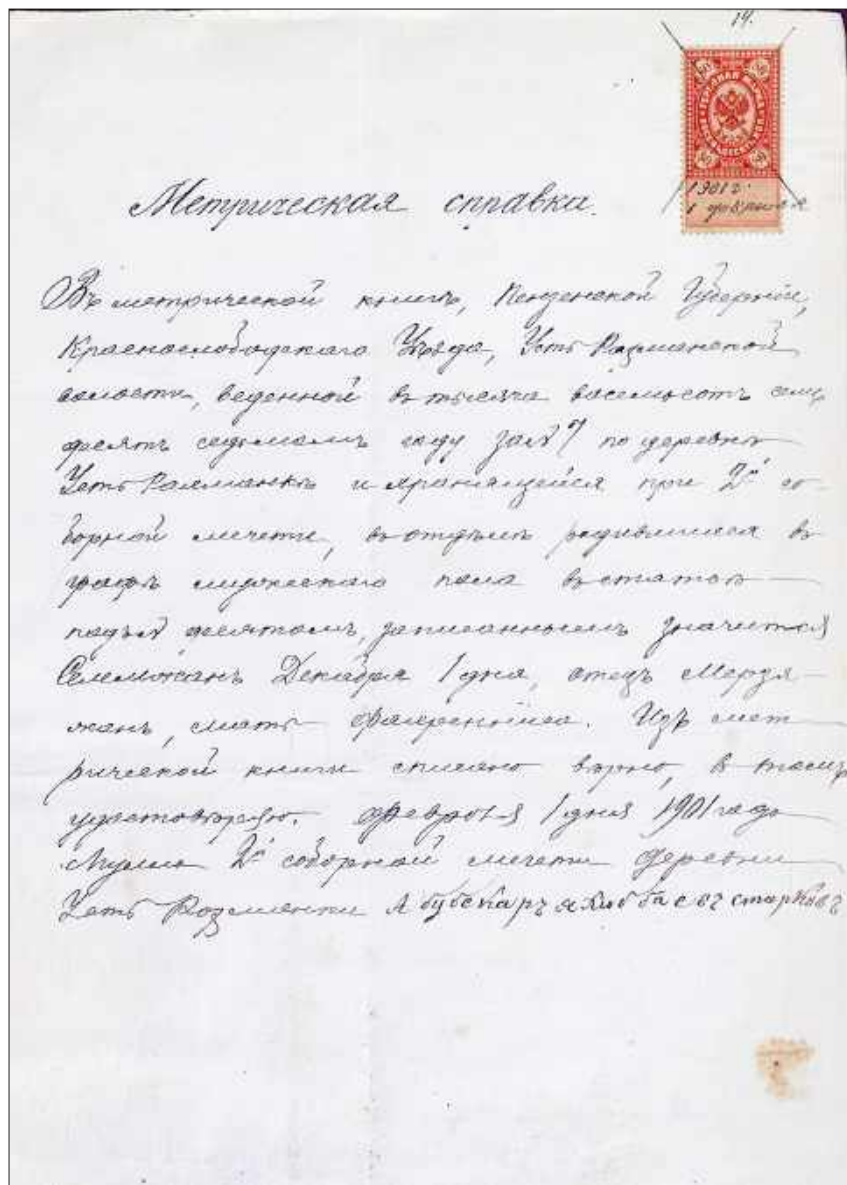 14.
ГЕРБОВАЯ МАРКА
1901 г.
1 февраля
Метрическая справка.
Въ метрической книгѣ, Пензенской Губерніи,
Краснослободскаго Уѣзда,
волости, веденной въ тысяча восемьсотъ семь
десятъ седьмомъ году за № 7 по деревнѣ
и хранящейся при 2й со-
борной мечети, въ отдѣлѣ родившихся въ
графѣ мужескаго пола въ статьѣ
подъ № десятомъ, записаннымъ значится
Селемжанъ Декабря 1 дня, отецъ Мердя-
жанъ, мать Изъ мет
рической книги списано вѣрно, въ томъ
удостовѣряю. Февраля 1 дня 1901 года
Мулла 2й соборной мечети деревни
Абубекаръ старковъ